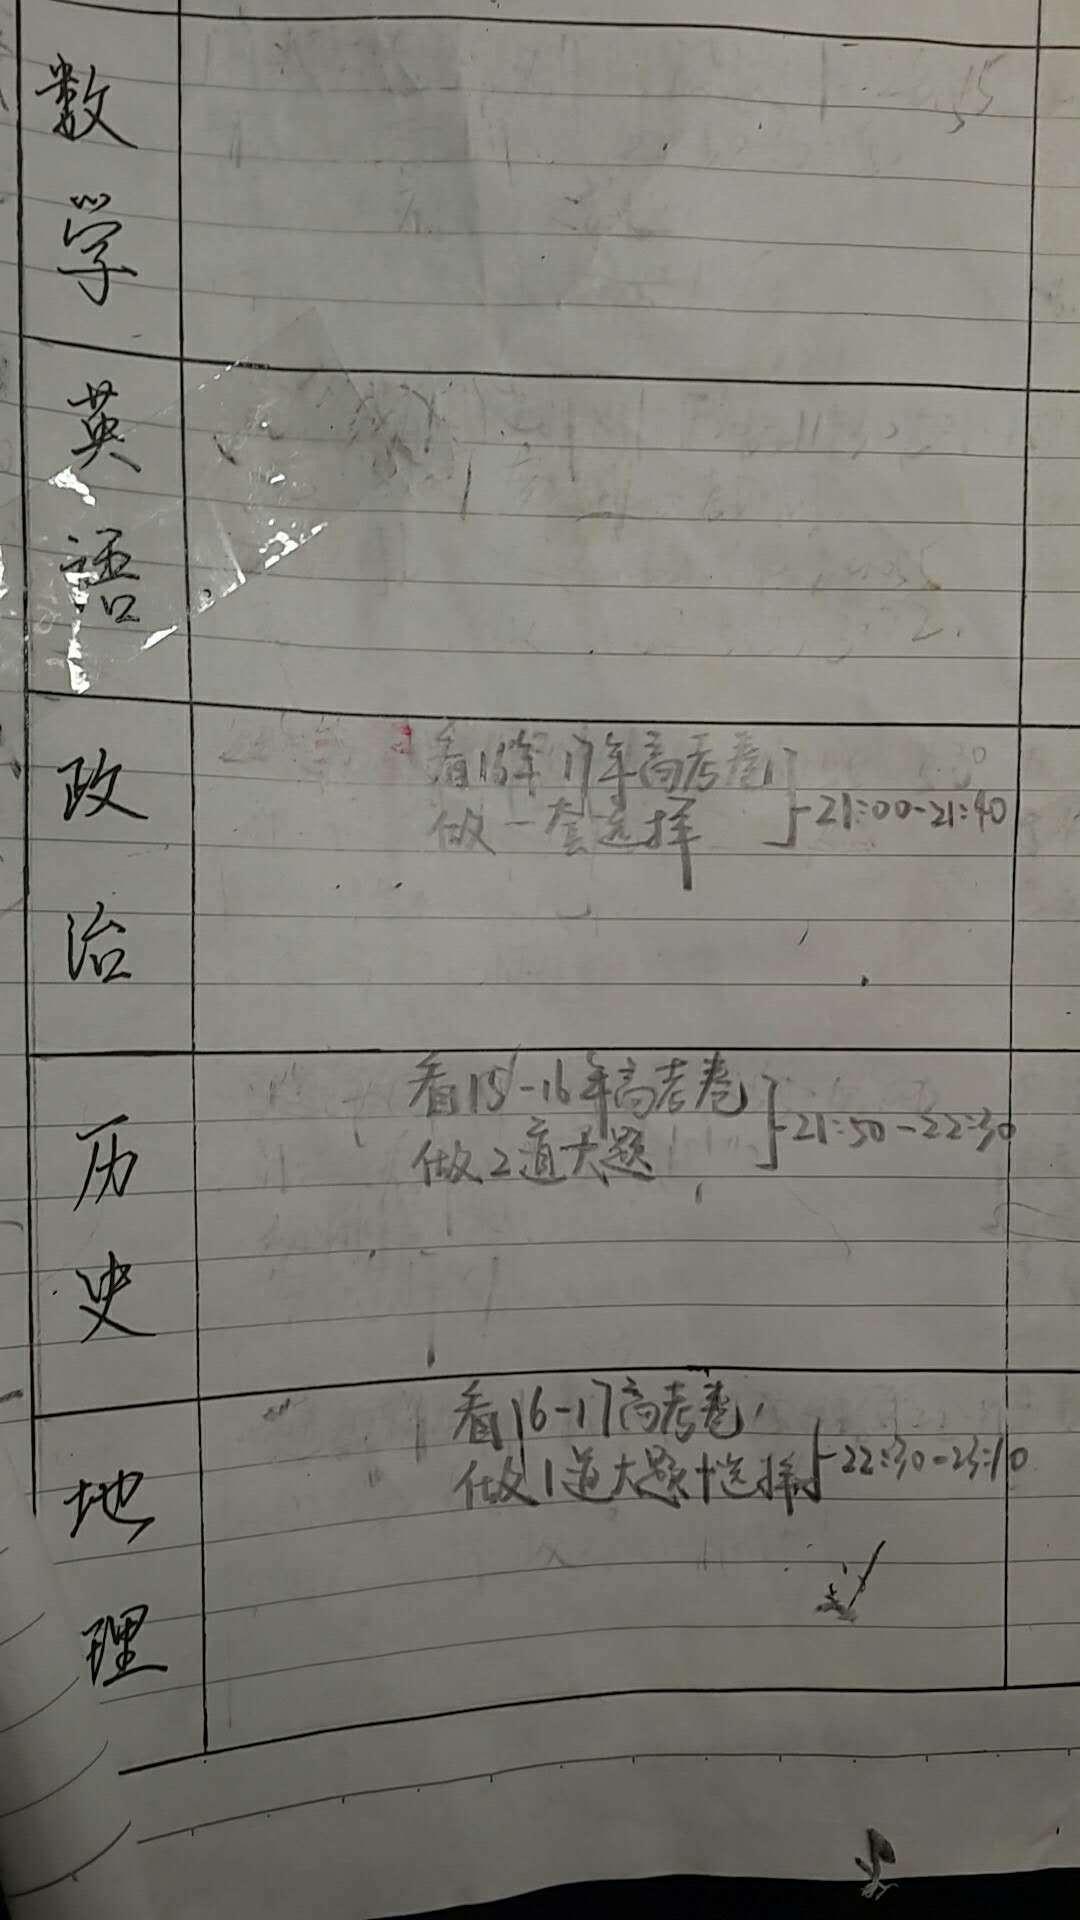 数学
英语
政治
看15年 17年高考卷
做一套选择
21:00-21:40
历史
看15-16年高考卷
做2道大题
21:50-22:30
地理
看16-17高考卷
做1道大题+选择
22:30-23:10